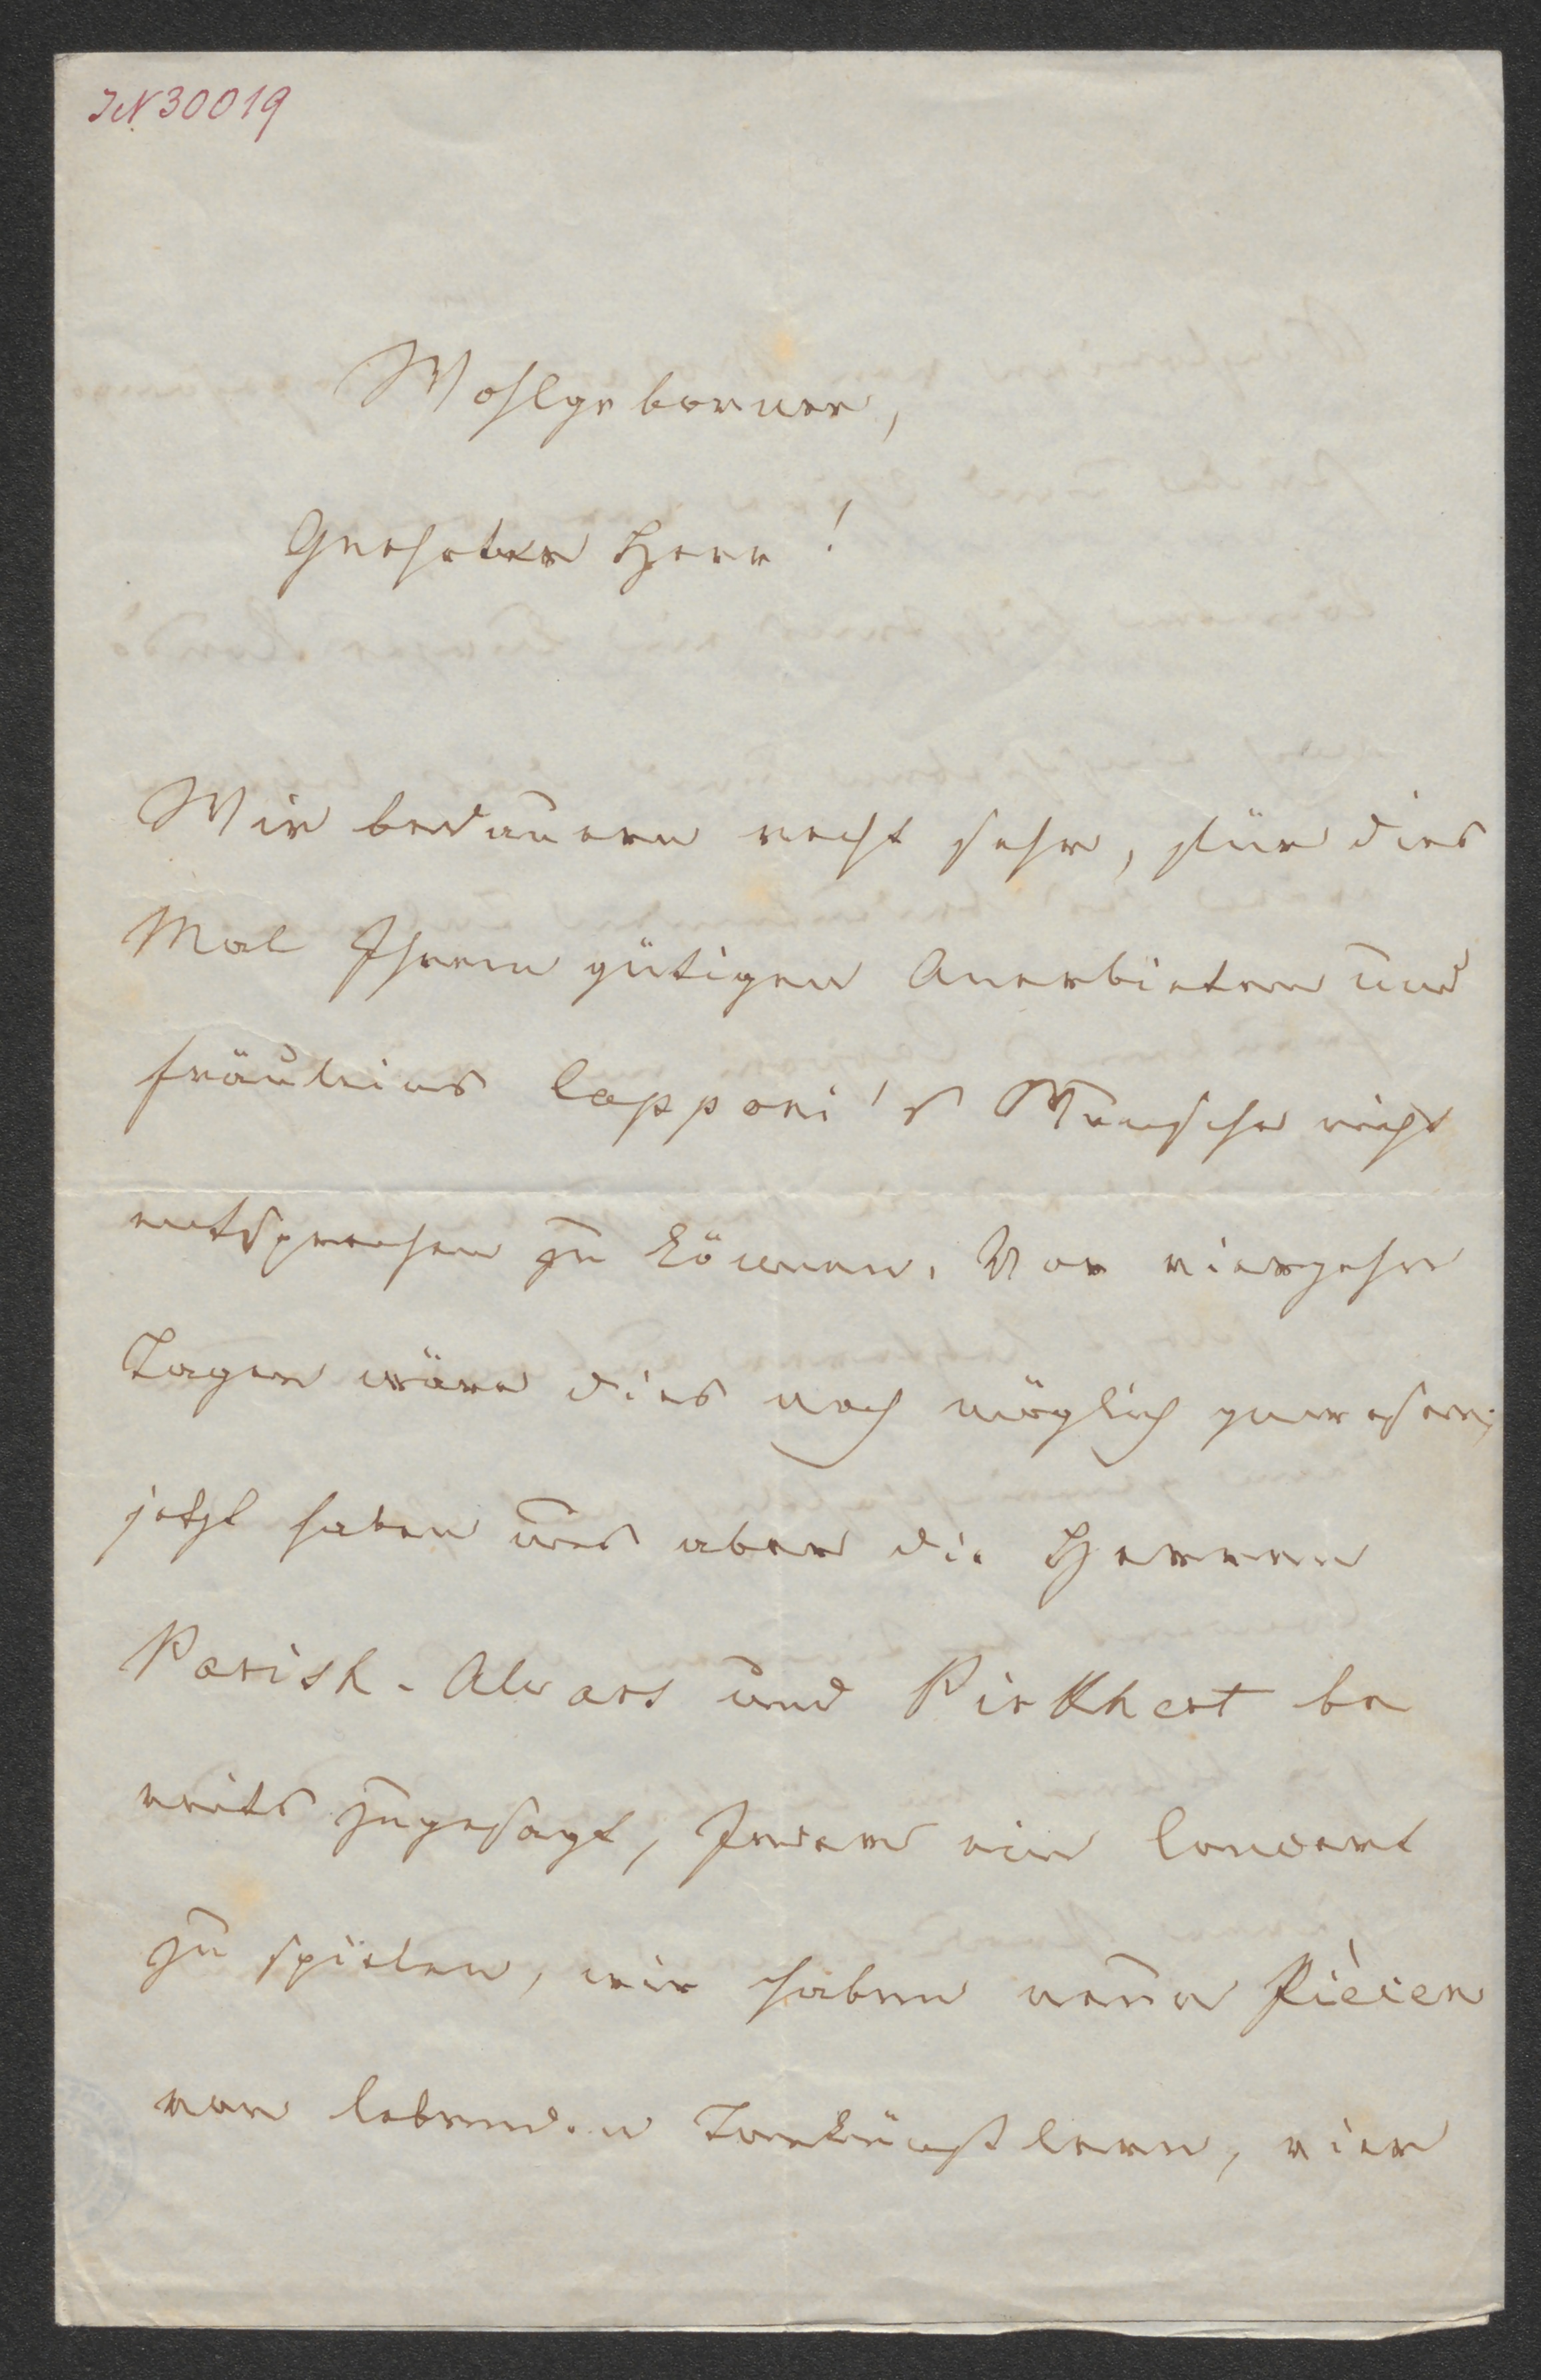 IN 30019
Wohlgeborner,
Geehrter Herr!
Wir bedauern recht sehr, für dies
Mal Ihrem gütigen Anerbieten und
Fräuleins Capponi's Wunsche nicht
entsprechen zu können. Vor vierzehn
Tagen wäre dies noch möglich gewesen;
jetzt haben uns aber die Herren
Parish-Alvars und Pirkhert be
reits zugesagt, Jeder ein Concert
zu spielen, wir haben neun Piècen
von lebenden Tonkünstlern, vier